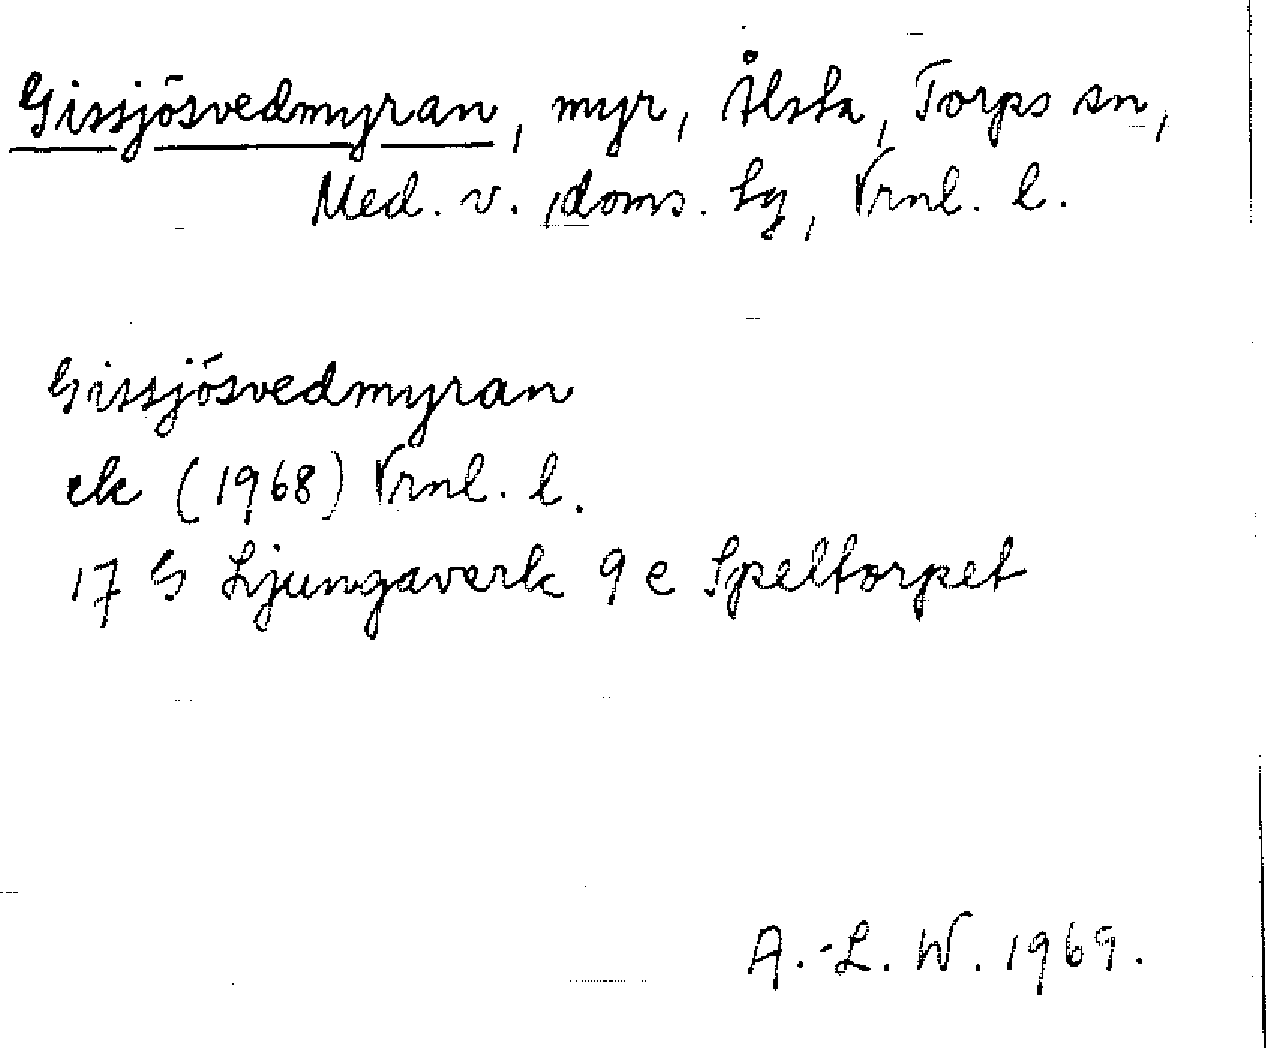 Gissjösvedmyran, myr, Ålsta, Torps sn,
Med. v. doms. lg, Vrnl. l.
Gissjösvedmyran
ek (1968) Vrnl. l.
17 G Ljungaverk 9 e Speltorpet
A.-L. W. 1969.